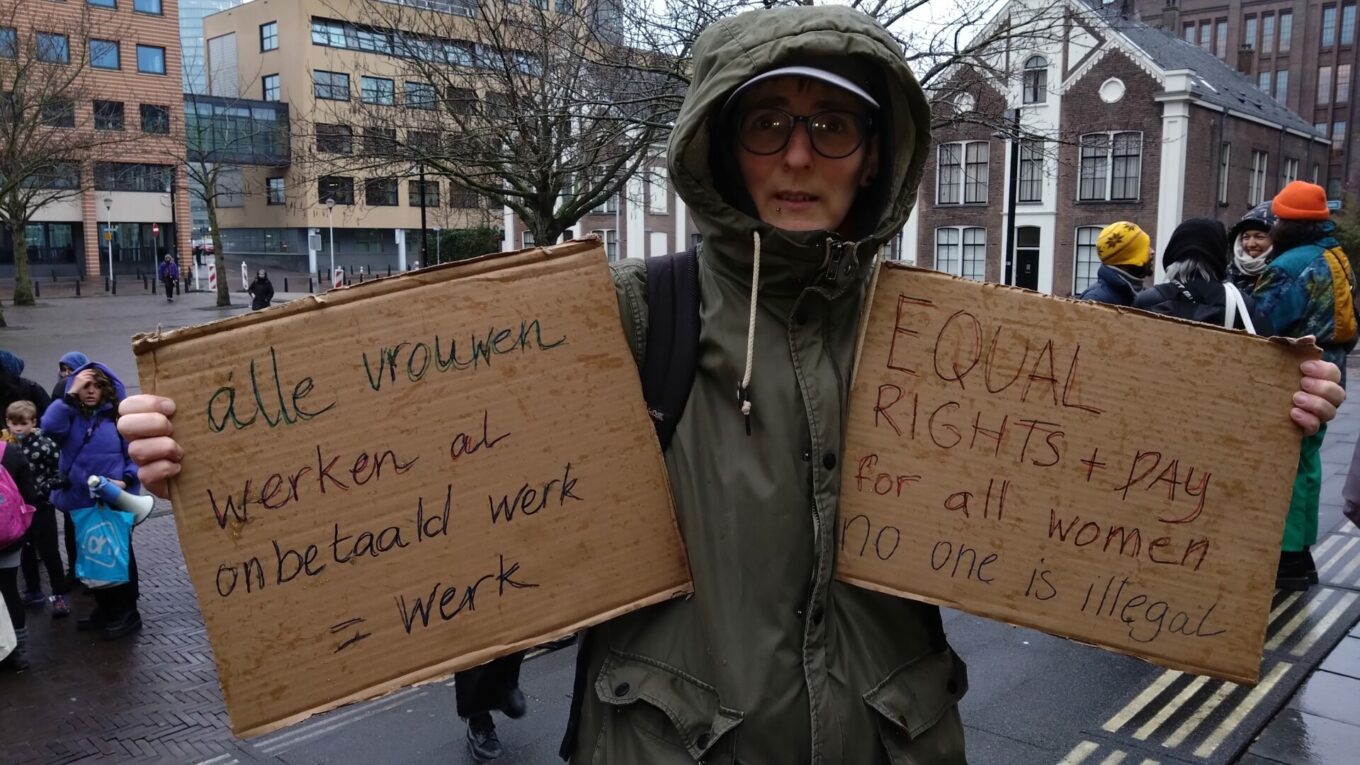 alle vrouwen
werken al
onbetaald werk
= werk
EQUAL
RIGHTS + PAY
for all women
no one is illegal
ah